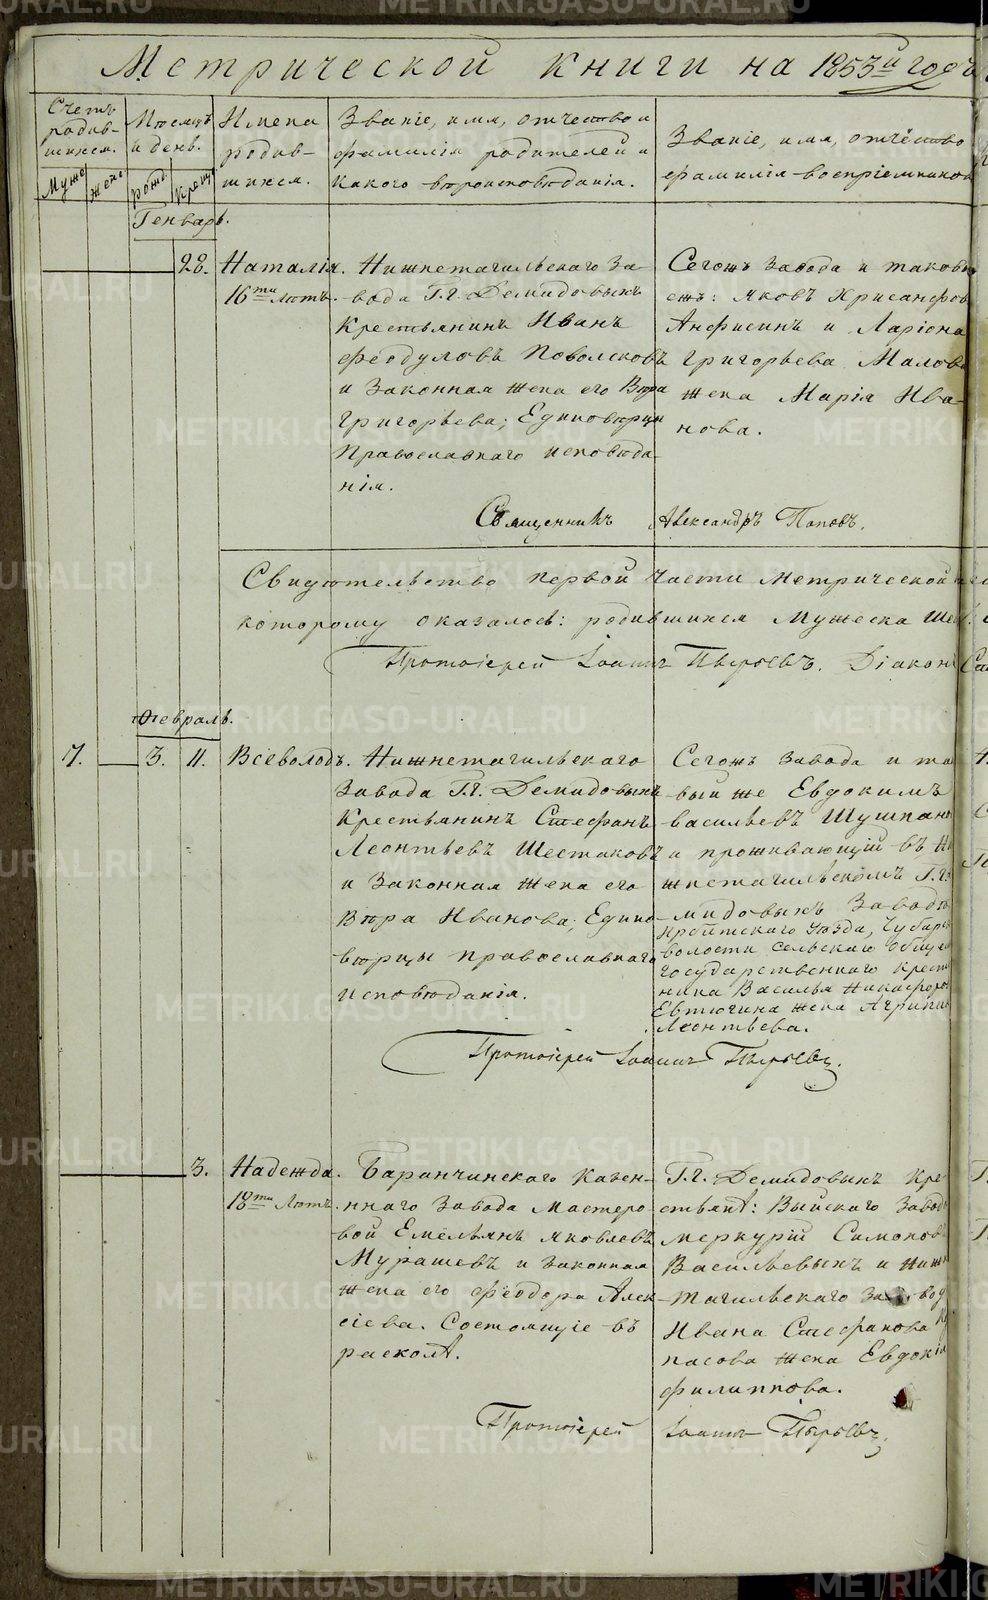 Метрической книги на 1853й годъ
Счетъ родив-шихся.
Муже
жене
Месяцъ и день.
рожд.
крещ.
Имена родив-шихся.
Званіе, имя, отчество и фамилія родителей и какого вероисповеданія.
Званіе, имя, отчество фамилія воспріемников
Генварь.
28.
Наталія.
16ти летъ.
Нижнетагильскаго За-
вода Г.г. Демидовыхъ
Крестьянинъ Иванъ
Феодуловъ
и Законная жена его Вѣра
Григорьева; Единовѣрцы
Православнаго исповѣда-
нія.
Сегожъ завода и
Яковъ Хрисанфов
Анфисинъ и Ларіона
Григорьева
жена Марія Ива-
нова.
Священникъ Александръ Поповъ.
Свидѣтельство первой части Метрической
которому оказалось: родившихся Мужеска
Протоіерей Іоаннъ Пырьевъ. Діаконъ
Февраль.
7.
3.
11.
Всеволодъ.
Нижнетагильскаго
Завода Г.г. Демидовыхъ
Крестьянинъ Стефанъ
Леонтьевъ Шестаковъ
и Законная жена его
Вѣра Иванова, Едино-
вѣрцы православнаго
исповѣданія.
Сегожъ завода и та
вый же Евдокимъ
Васильевъ
и проживающій въ Ни
жнетагильскомъ Г.г. Де
мидовыхъ Заводѣ
Ирбитскаго Уѣзда,
волости сельскаго обще
государственнаго крестья
нина Василья Никифоро
Евтюгина жена Агрипин
Леонтьева.
Протоіерей Іоаннъ Пырьевъ.
3.
Надежда.
18ти Летъ.
Баранчинскаго Казен-
ннаго Завода мастеро
вой Емельянъ Яковлевъ
Мурашевъ и законная
жена его Феодора Алек
сіева. Состоящіе въ
расколѣ.
Г.г. Демидовыхъ Кре
стьянѣ: Выйскаго Завода
Меркурій Симонов
Васильевыхъ и Нижн
тагильскаго завод
Ивана Стефанова
пасова жена Евдокія
Филиппова.
Протоіерей Іоаннъ Пырьевъ.
METRIKI.GASO-URAL.RU